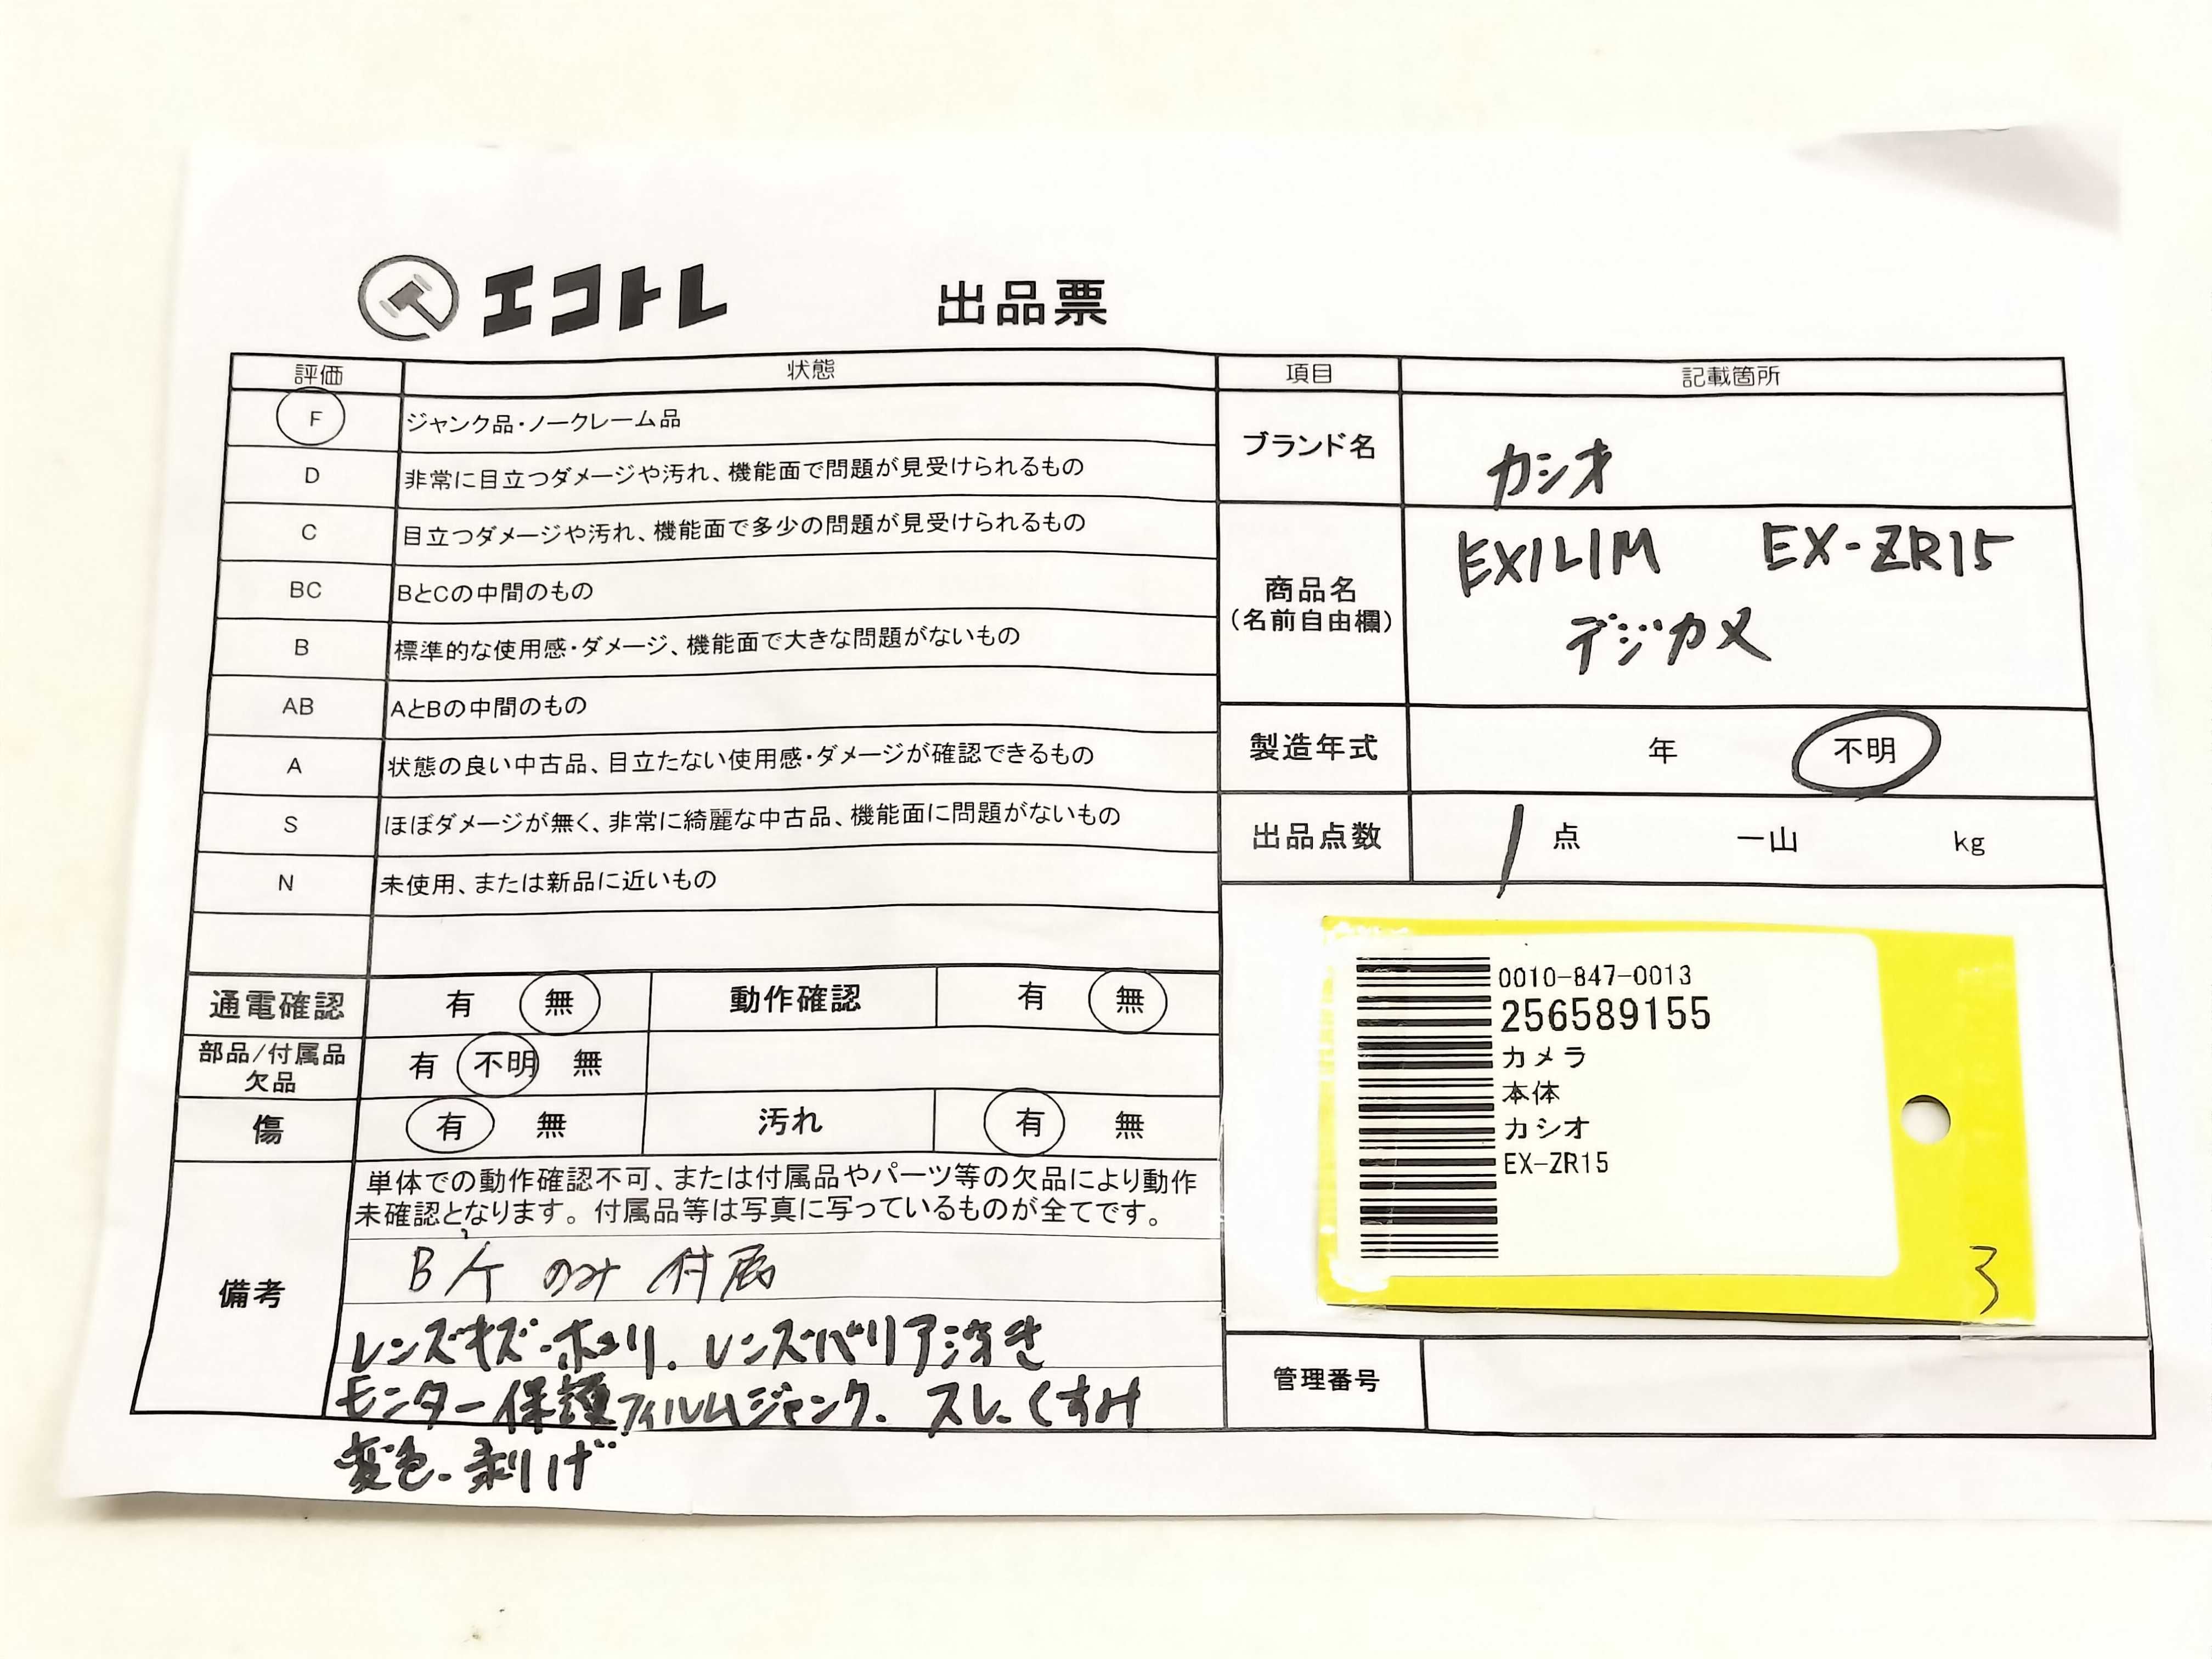 エコトレ 出品票
評価 状態
F ジャンク品・ノークレーム品
D 非常に目立つダメージや汚れ、機能面で問題が見受けられるもの
C 目立つダメージや汚れ、機能面で多少の問題が見受けられるもの
BC BとCの中間のもの
B 標準的な使用感・ダメージ、機能面で大きな問題がないもの
AB AとBの中間のもの
A 状態の良い中古品、目立たない使用感・ダメージが確認できるもの
S ほぼダメージが無く、非常に綺麗な中古品、機能面に問題がないもの
N 未使用、または新品に近いもの
通電確認 有 無 動作確認 有 無
部品/付属品
欠品
有 不明 無
傷 有 無 汚れ 有 無
備考
単体での動作確認不可、または付属品やパーツ等の欠品により動作
未確認となります。付属品等は写真に写っているものが全てです。
のみ 付属
レンズキズ・ホコリ. レンズバリア浮き
モニター保護フィルムジャンク. スレ.くすみ
変色.剥げ
項目 記載箇所
ブランド名 カシオ
商品名
(名前自由欄)
EXILIM EX-ZR15
デジカメ
製造年式 年 不明
出品点数 1 点 一山 kg
0010-847-0013
256589155
カメラ
本体
カシオ
EX-ZR15
3
管理番号